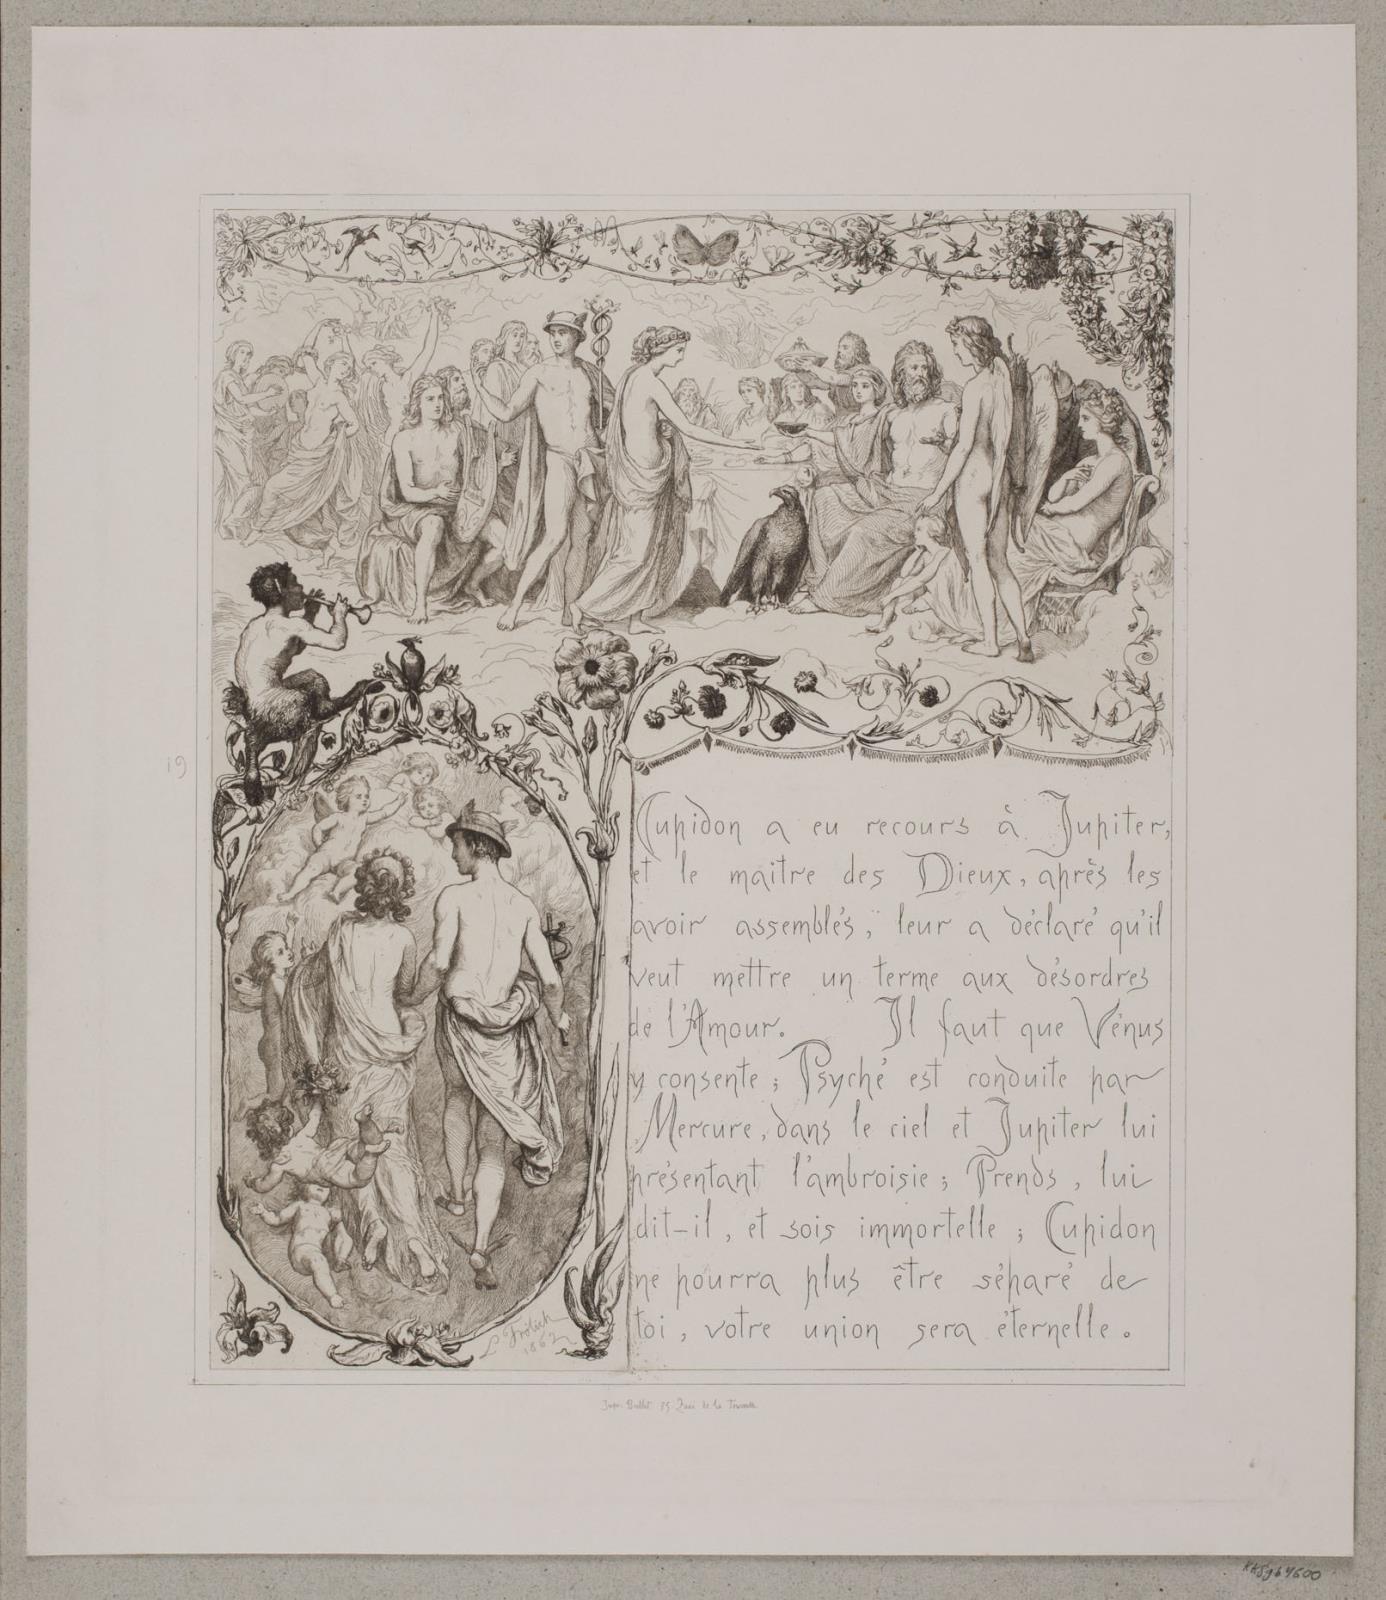 Cupidon a eu recours à Jupiter,
et le maitre des Dieux, après les
avoir assemblés, leur a déclaré qu'il
veut mettre un terme aux désordres
de l'Amour. Il faut que Vénus
y consente ; Psyché est conduite par
Mercure, dans le ciel et Jupiter lui
présentant l'ambroisie ; Prends, lui
dit-il, et sois immortelle ; Cupidon
ne pourra plus être séparé de
toi, votre union sera éternelle.
L Frölich
1862
19
Quai de la
KKSgb4600